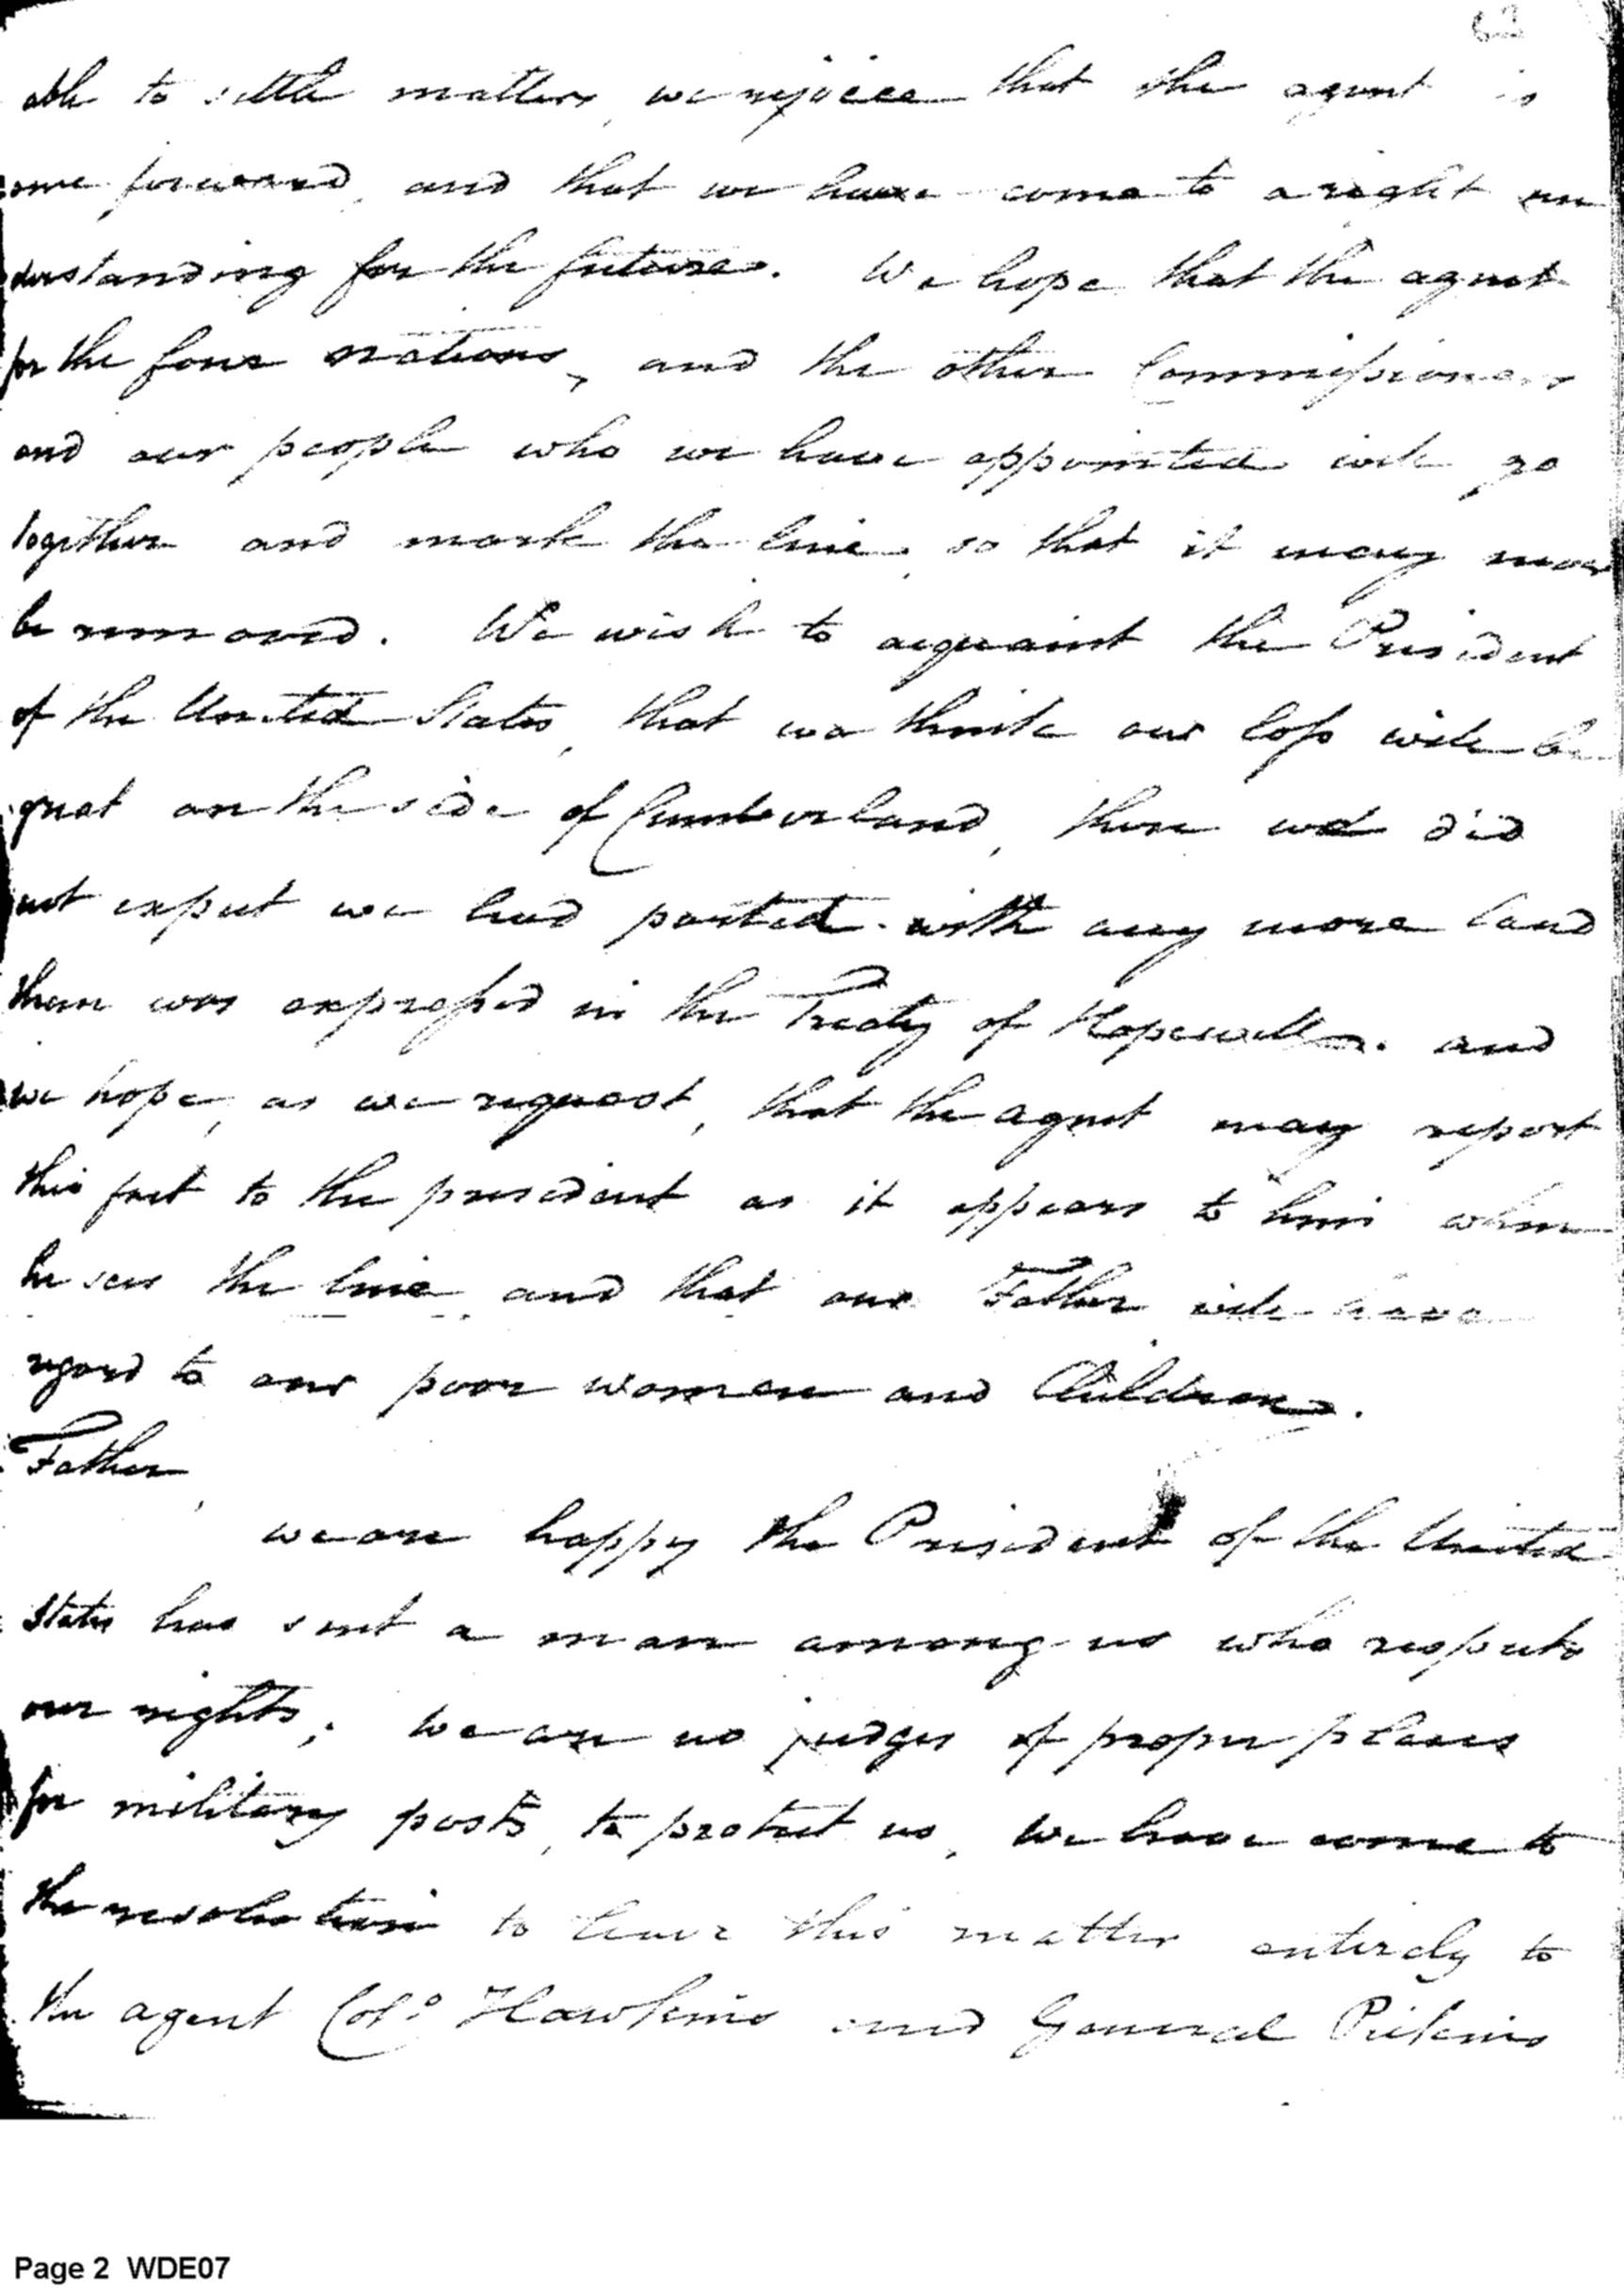 62
able to settle matters, we rejoice that the agent is
come forward, and that we have come to a right un
derstanding for the future. We hope that the agent
for the four nations, and the other Commissioners
and our people who we have appointed will go
together and mark the line, so that it may never
be removed. We wish to acquaint the President
of the United States, that we think our loss will be
great on the side of Cumberland, there we did
not expect we had parted with any more land
than was expressed in the Treaty of Hopewell. and
we hope, as we request, that the agent may report
this fact to the president as it appears to him when
he sees the line, and that our Father will have
regard to our poor women and Children.
Father,
we are happy the President of the United
States has sent a man among us who respects
our rights; we are no judges of proper places
for military posts, to protect us, we have come to
the resolution to leave this matter entirely to
the agent Colo. Hawkins and General Pickens
Page 2 WDE07